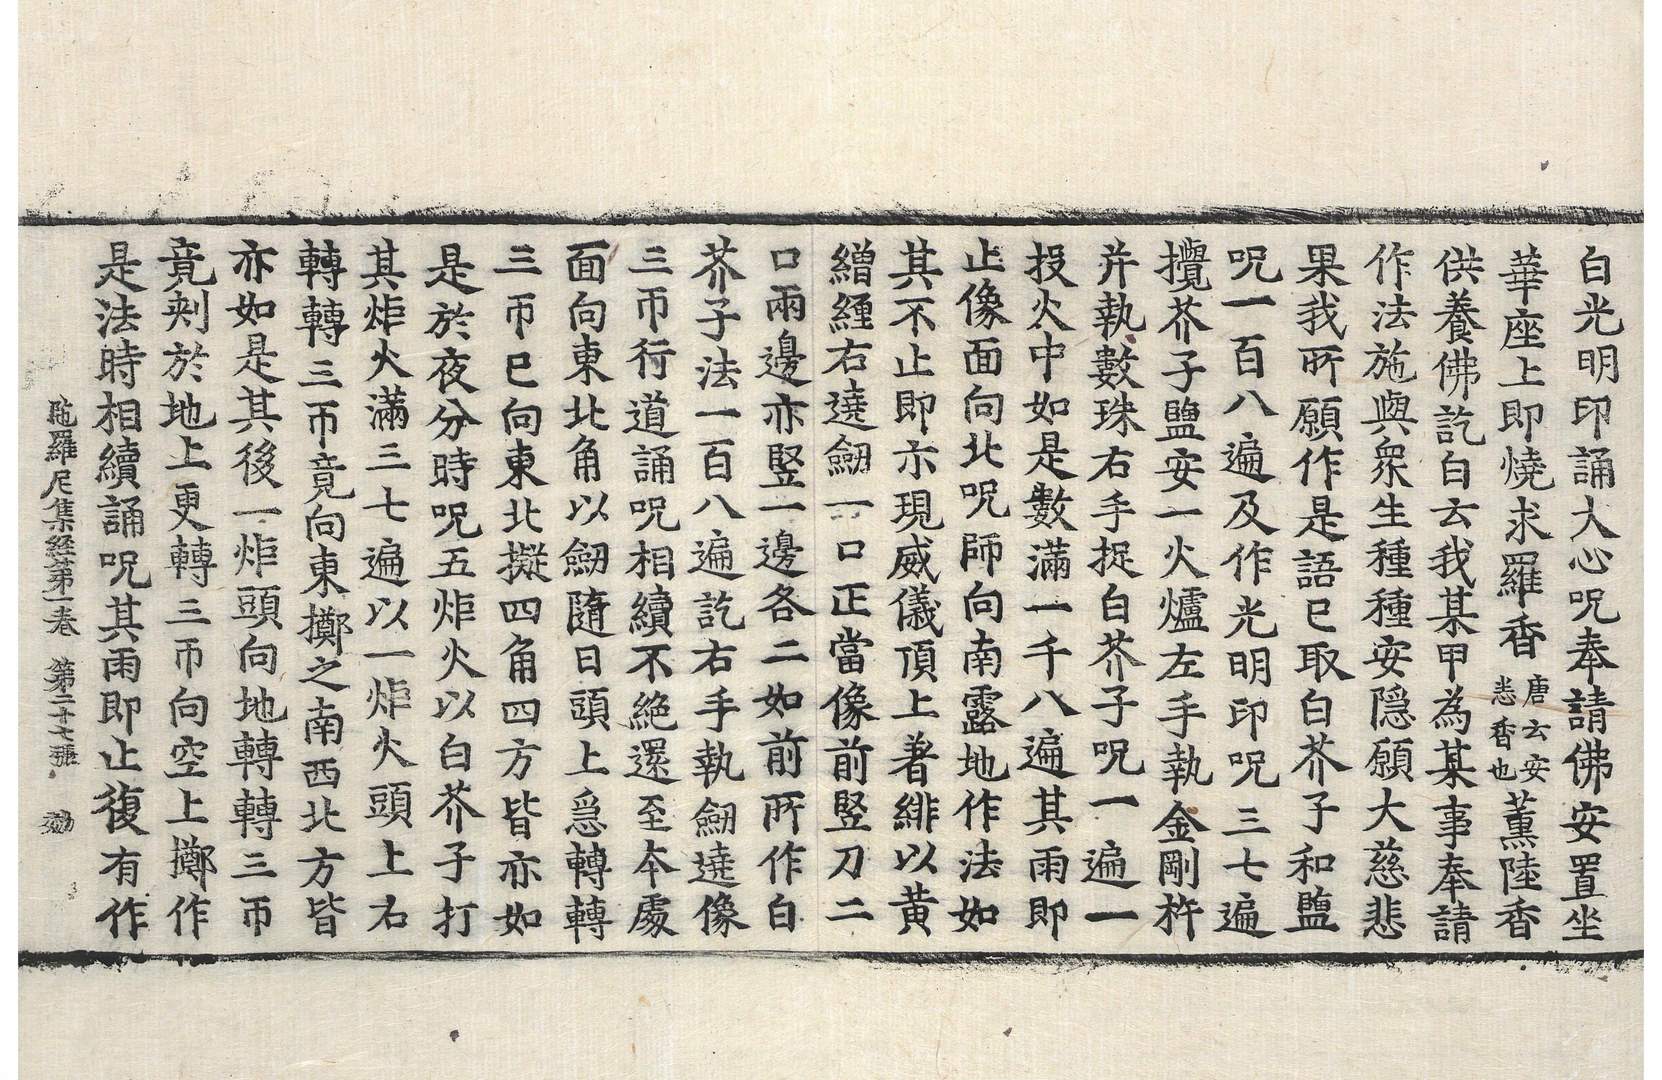 白光明印誦大心呪奉請佛安置坐
華座上即燒求羅香唐云安悉香也薰陸香
供養佛訖白云我某甲為某事奉請
作法施與衆生種種安隱願大慈悲
果我所願作是語已取白芥子和鹽
呪一百八遍及作光明印呪三七遍
攪芥子鹽安一火爐左手執金剛杵
并執數珠右手捉白芥子呪一遍一
投火中如是數滿一千八遍其雨即
止像面向北呪師向南露地作法如
其不止即示現威儀頂上著緋以黃
繒纏右遶劒一口正當像前竪刀二
口兩邊亦竪一邊各二如前所作白
芥子法一百八遍訖右手執劒遶像
三帀行道誦呪相續不絶還至本處
面向東北角以劒隨日頭上急轉轉
三帀已向東北擬四角四方皆亦如
是於夜分時呪五炬火以白芥子打
其炬火滿三七遍以一炬火頭上右
轉轉三帀竟向東擲之南西北方皆
亦如是其後一炬頭向地轉轉三帀
竟剌於地上更轉三帀向空上擲作
是法時相續誦呪其雨即止復有作
陁羅尼集經第一卷　第二十七張